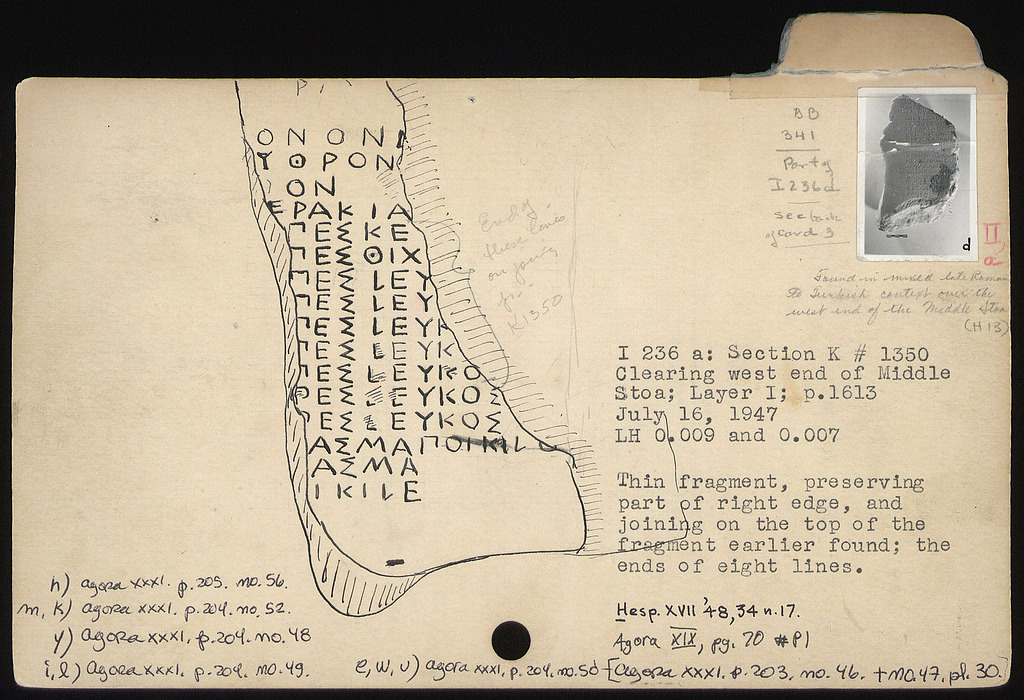 Ρ Ι
Ο Ν Ο Ν Ι
Υ Θ Ρ Ο Ν
Ο Ν
Ε Ρ Α Κ Ι Α
Π Ε Σ Κ Ε
Γ Ε Σ Θ Ι Χ
Π Ε Σ Λ Ε Υ
Γ Ε Σ Λ Ε Υ
Γ Ε Σ Λ Ε Υ Κ
Γ Ε Σ Λ Ε Υ Κ
Π Ε Σ Λ Ε Υ Κ Ο
Ρ Ε Σ Λ Ε Υ Κ Ο Σ
Γ Ε Σ Λ Ε Υ Κ Ο Σ
Α Σ Μ Α Π Ο Ι Κ Ι Λ
Α Σ Μ Α
Ι Κ Ι Λ Ε
End of
these lines
on joining
K1350
BB
341
Part of
I 236a
see back
of card 3
d
II
a
Found in mixed late Roman
to Turkish context over the
west end of the Middle Stoa
(H 13)
I 236 a: Section K # 1350
Clearing west end of Middle
Stoa; Layer I; p.1613
July 16, 1947
LH 0.009 and 0.007
Thin fragment, preserving
part of right edge, and
joining on the top of the
fragment earlier found; the
ends of eight lines.
h) Agora XXXI. p. 205. no. 56.
m, k) Agora XXXI. p. 204. no. 52.
y) Agora XXXI, p. 204. no. 48
i, l) Agora XXXI. p. 204. no. 49.
Hesp. XVII '48, 34 n. 17.
Agora XIX, pg. 70 #P1
e, w, u) Agora XXXI, p. 204. no. 50 [Agora XXXI. p. 203. no. 46. + no. 47. pl. 30.]